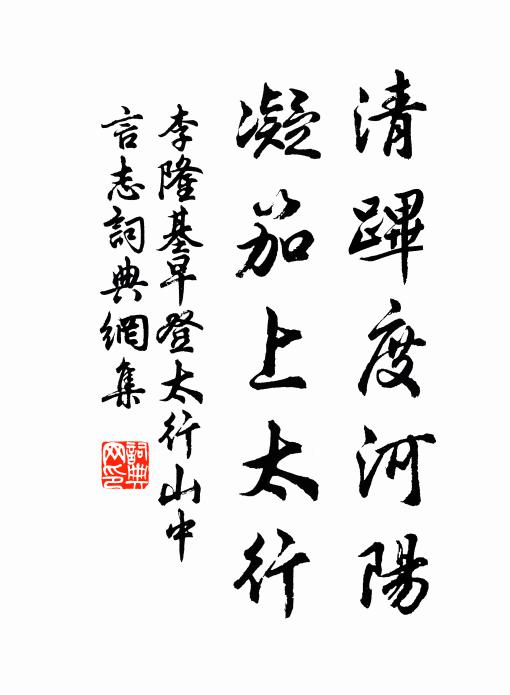 清蹕度河陽
凝笳上太行
李隆基早登太行山中
言志詞典網集
詞典
网印